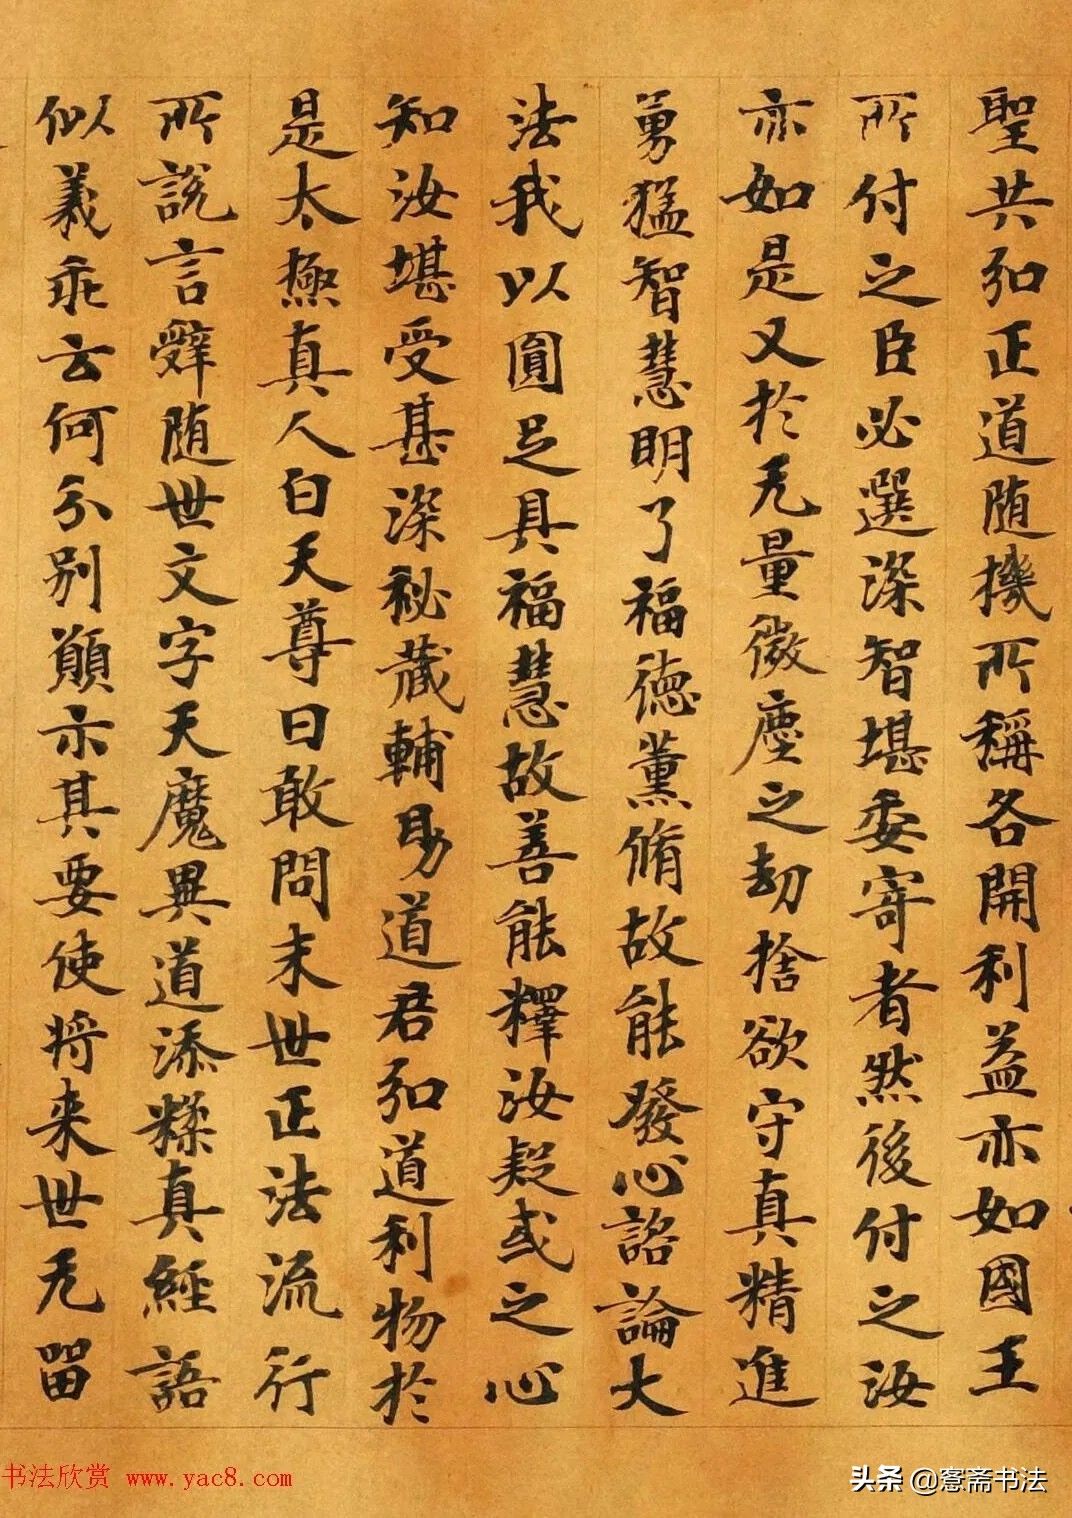 聖共弘正道随機所稱各開利益亦如國王
所付之臣必選深智堪委寄者然後付之汝
亦如是又於无量微塵之劫捨欲守真精進
勇猛智慧明了福德薫脩故能發心諮論大
法我以圓足具福慧故善能釋汝疑或之心
知汝堪受甚深秘藏輔助道君弘道利物於
是太極真人白天尊曰敢問末世正法流行
所說言辭随世文字天魔異道添糅真經語
似義乖云何分別顚亦其要使将来世无留
书法欣赏 www.yac8.com
头条 @愙斋书法